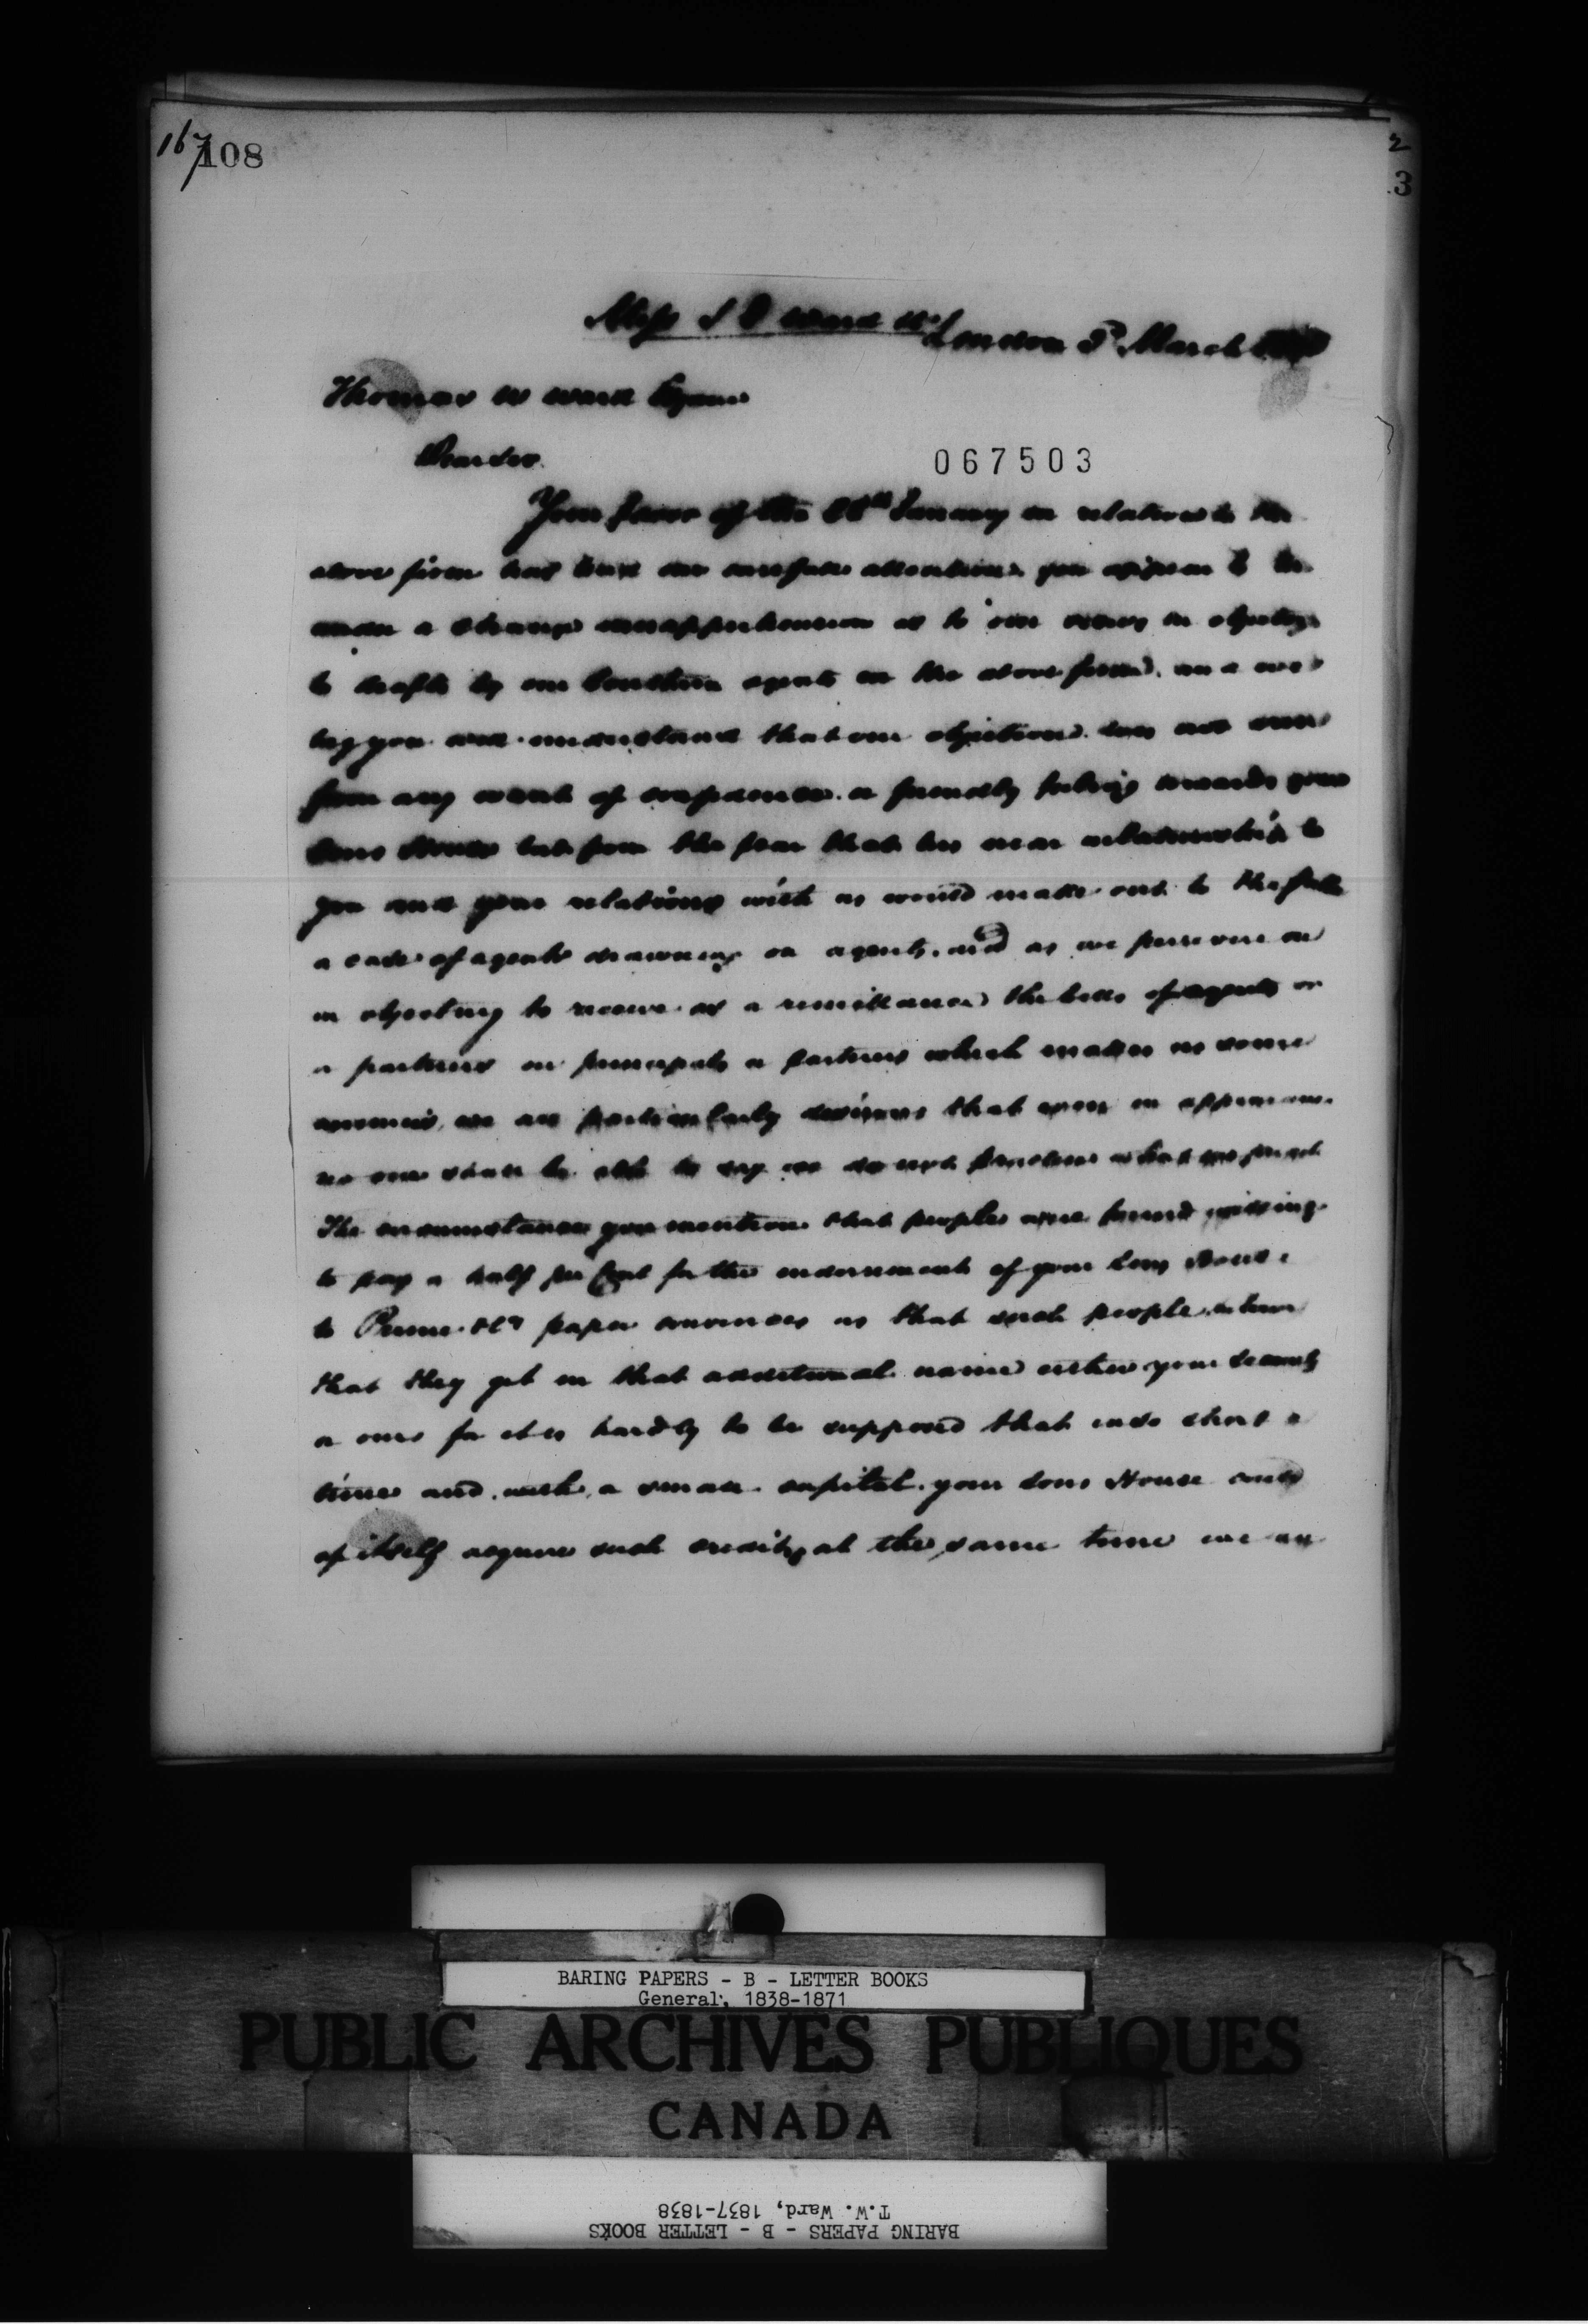 167
108
2
3
Mess S G Ward &Co
London 3d March
Thomas W Ward Esquire
Dear Sir
067503
Your favor of the 28th January in relation to the
above firm has had our careful attention. you appear to be
under a strange misapprehension as to our views in objecting
to drafts by our Southern agents on the above firm. and we
beg you will understand that our objection does not arise
from any want of confidence or friendly feeling towards your
Sons House but from the fear that his near relationship to
you and your relations with us would make out to the public
a case of agents drawing on agents. and as we persevere
in objecting to receive as a remittance the bills of agents or
a partners on principals or partners which makes us some
enemies, we are particularly desirous that even in appearance
no one shall be able to say we do not practise what we preach
The circumstance you mention that people were found willing
to pay a half per Cent for the endorsement of your Sons House
to Prime &Co paper convinces us that such people believe
that they get in that additional name either your security
or ours for it is hardly to be supposed that in so short a
time and with a small capital your Sons House could
of itself acquire such credit, at the same time we are
BARING PAPERS - B - LETTER BOOKS
General, 1838-1871
PUBLIC ARCHIVES PUBLIQUES
CANADA
BARING PAPERS - B - LETTER BOOKS
T.W. Ward, 1837-1838